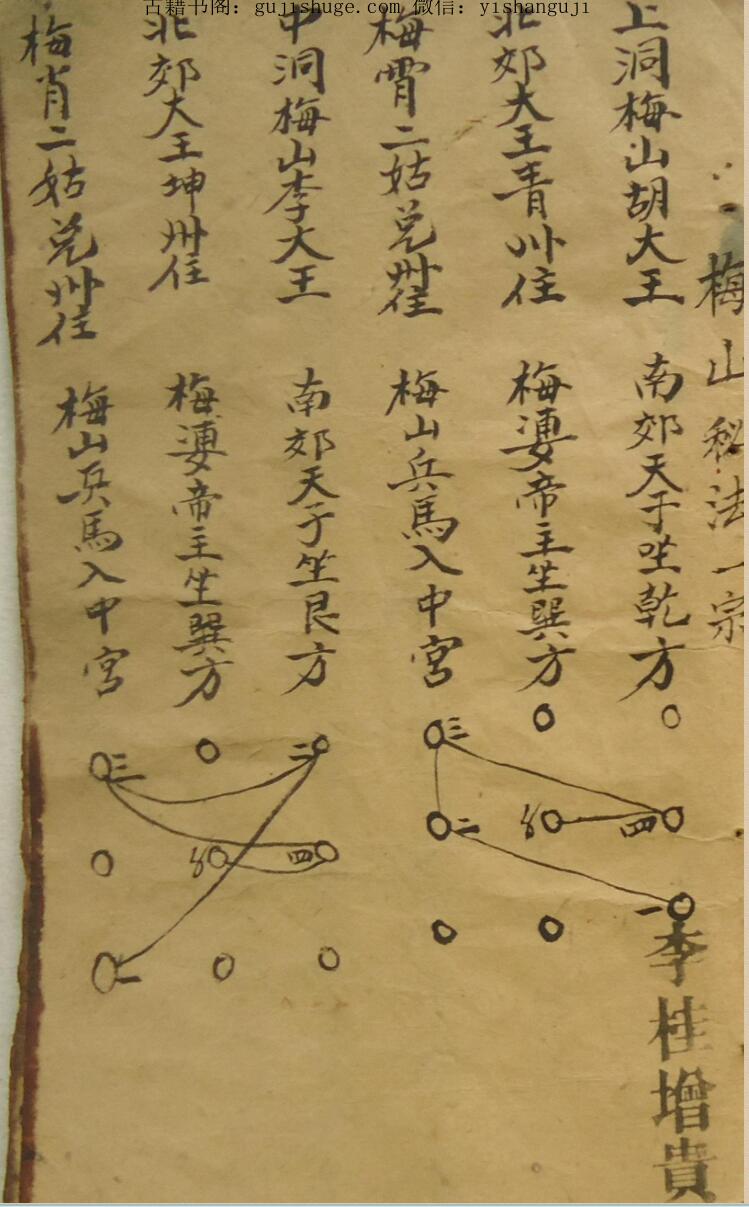 古籍书阁：gujishuge.com 微信：yishanguji
梅山秘法一宗
上洞梅山胡大王 南郊天子坐乾方
北郊大王青州住 梅婆帝主坐巽方
梅霄二姑兑州住 梅山兵馬入中宮
中洞梅山李大王 南郊天子坐艮方
北郊大王坤州住 梅婆帝主坐巽方
梅肖二姑兑州住 梅山兵馬入中宮
一
二
三
四
一
二
三
四
李桂增貴